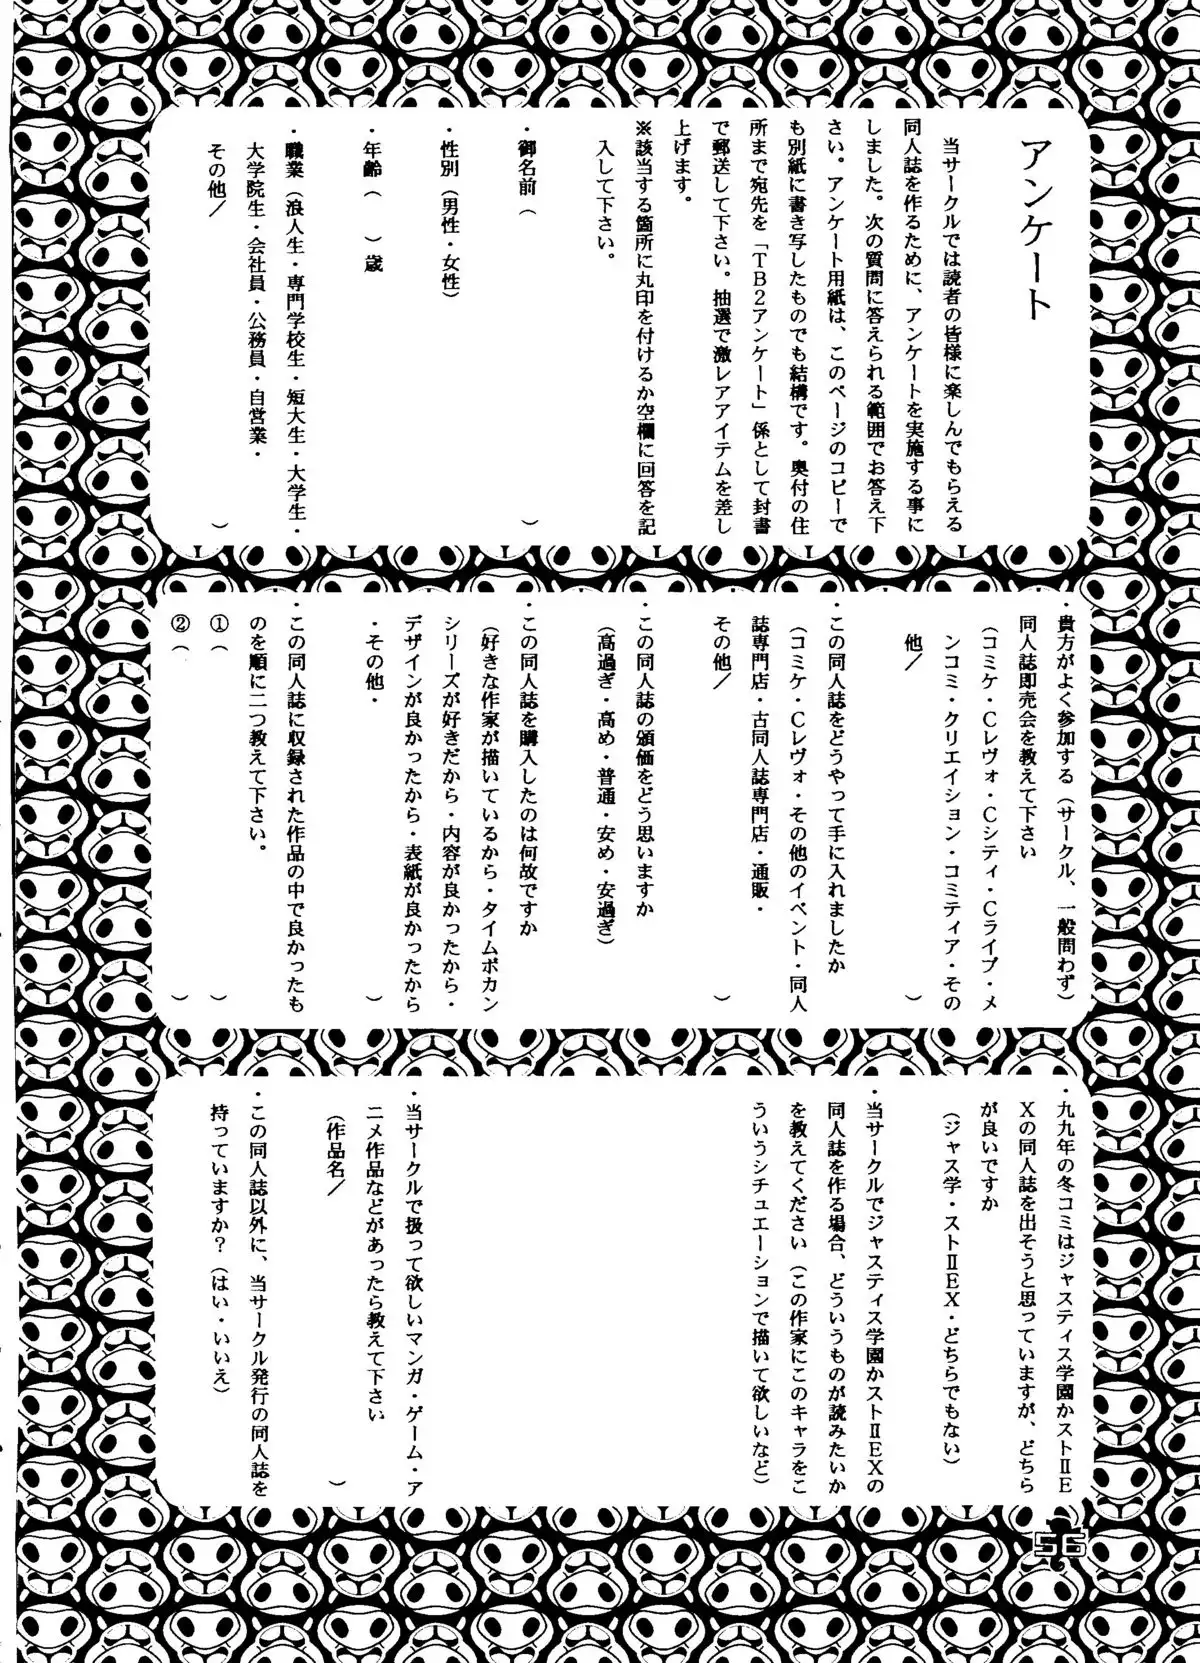 アンケート
当サークルでは読者の皆様に楽しんでもらえる
同人誌を作るために、アンケートを実施する事に
しました。次の質問に答えられる範囲でお答え下
さい。アンケート用紙は、このページのコピーで
も別紙に書き写したものでも結構です。奥付の住
所まで宛先を「TB2アンケート」係として封書
で郵送して下さい。抽選で激レアアイテムを差し
上げます。
※該当する箇所に丸印を付けるか空欄に回答を記
入して下さい。
・御名前（　）
・性別（男性・女性）
・年齢（　）歳
・職業（浪人生・専門学校生・短大生・大学生・
大学院生・会社員・公務員・自営業・
その他／　）
・貴方がよく参加する（サークル、一般問わず）
同人誌即売会を教えて下さい
（コミケ・Cレヴォ・Cシティ・Cライブ・メ
ンコミ・クリエイション・コミティア・その
他／　）
・この同人誌をどうやって手に入れましたか
（コミケ・Cレヴォ・その他のイベント・同人
誌専門店・古同人誌専門店・通販・
その他／　）
・この同人誌の頒価をどう思いますか
（高過ぎ・高め・普通・安め・安過ぎ）
・この同人誌を購入したのは何故ですか
（好きな作家が描いているから・タイムボカン
シリーズが好きだから・内容が良かったから・
デザインが良かったから・表紙が良かったから
・その他・　）
・この同人誌に収録された作品の中で良かったも
のを順に二つ教えて下さい。
①（　）
②（　）
・九九年の冬コミはジャスティス学園かストⅡE
Xの同人誌を出そうと思っていますが、どちら
が良いですか
（ジャス学・ストⅡEX・どちらでもない）
・当サークルでジャスティス学園かストⅡEXの
同人誌を作る場合、どういうものが読みたいか
を教えてください（この作家にこのキャラをこ
ういうシチュエーションで描いて欲しいなど）
・当サークルで扱って欲しいマンガ・ゲーム・ア
ニメ作品などがあったら教えて下さい
（作品名／　）
・この同人誌以外に、当サークル発行の同人誌を
持っていますか？（はい・いいえ）
56